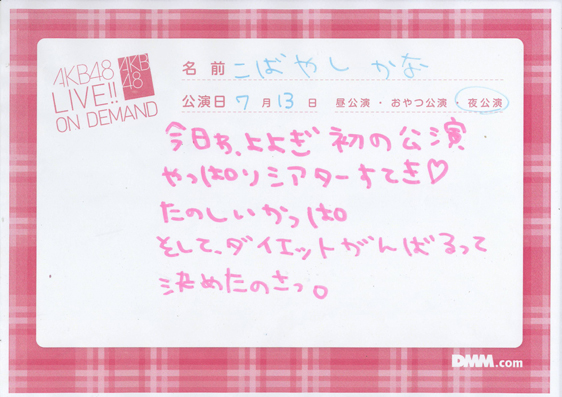 AKB48
LIVE!!
ON DEMAND
AKB
48
名前 こばやし かな
公演日 7月13日 昼公演・おやつ公演・夜公演
今日わ、よよぎ初の公演
やっぱりシアターすてき♡
たのしいかっぱ
そして、ダイエットがんばるって
決めたのさっ。
DMM.com